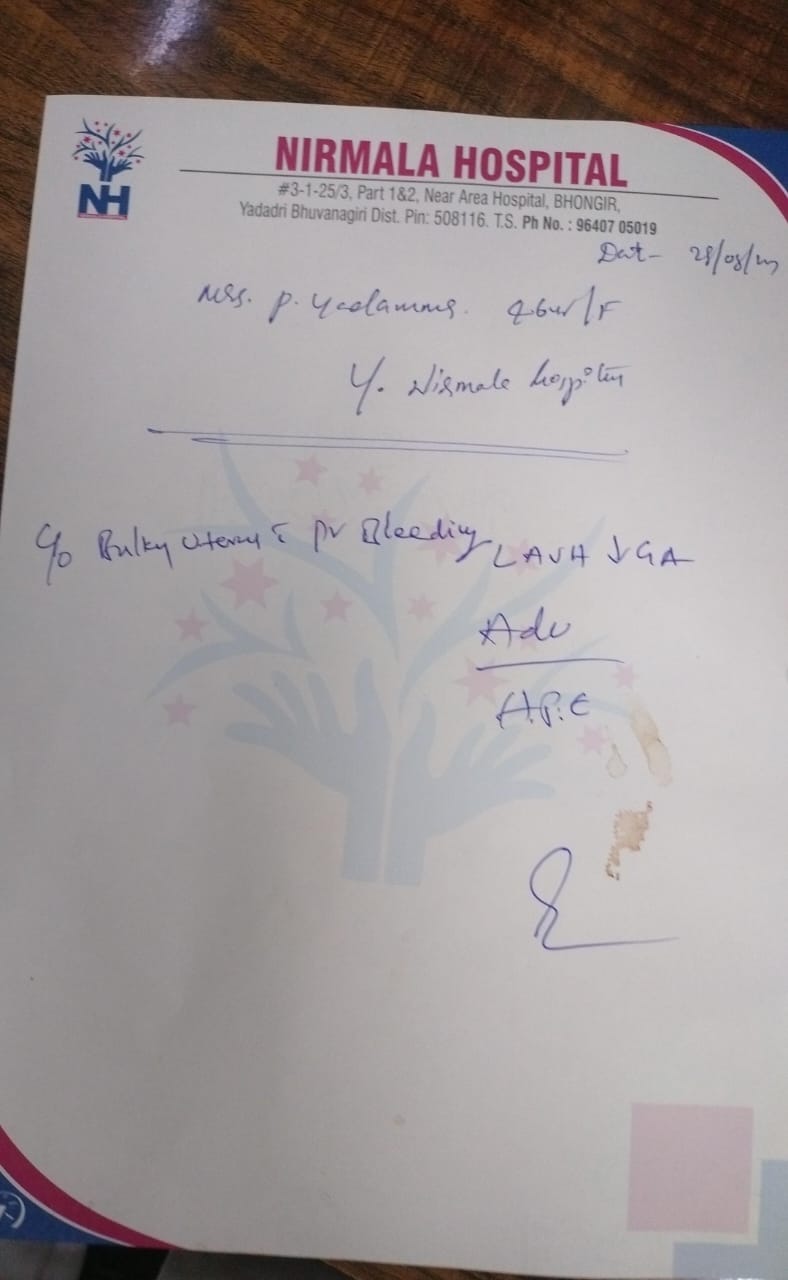 NH
NIRMALA HOSPITAL
#3-1-25/3, Part 1&2, Near Area Hospital, BHONGIR,
Yadadri Bhuvanagiri Dist. Pin: 508116. T.S. Ph No. : 96407 05019
Dat-
Mrs. P. Yadamma. /F
Nirmala hospital
C/o Bulky uterus c̄ PV Bleeding LAVH ↓ GA
Adv
H.P.E